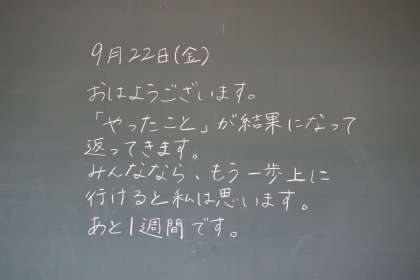 9月22日(金)
おはようございます。
「やったこと」が結果になって
返ってきます。
みんななら、もう一歩上に
行けると私は思います。
あと1週間です。